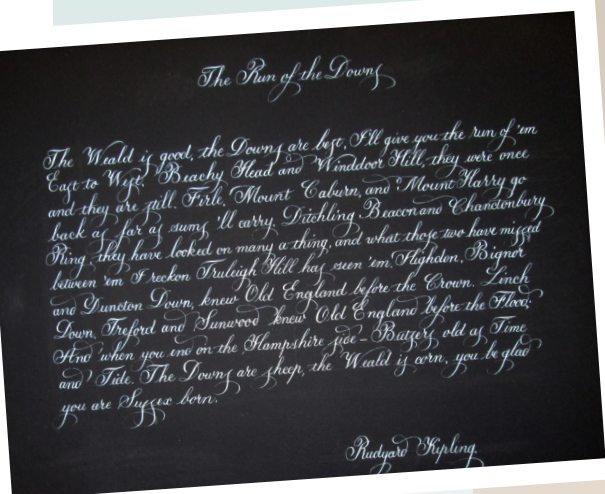 The Run of the Downs
The Weald is good, the Downs are best, I'll give you the run of 'em
East to West. Beachy Head and Winddoor Hill, they were once
and they are still. Firle, Mount Caburn, and Mount Harry go
back as far as sums 'll carry. Ditchling Beacon and Chanctonbury
Ring they have looked on many a thing, and what those two have missed
between 'em I reckon Truleigh Hill has seen 'em. Highden, Bignor
and Duncton Down, knew Old England before the Crown. Linch
Down, Treford and Sunwood knew Old England before the Flood:
And when you end on the Hampshire side - Butsers old as Time
and Tide. The Downs are sheep, the Weald is corn, you be glad
you are Sussex born.
Rudyard Kipling.